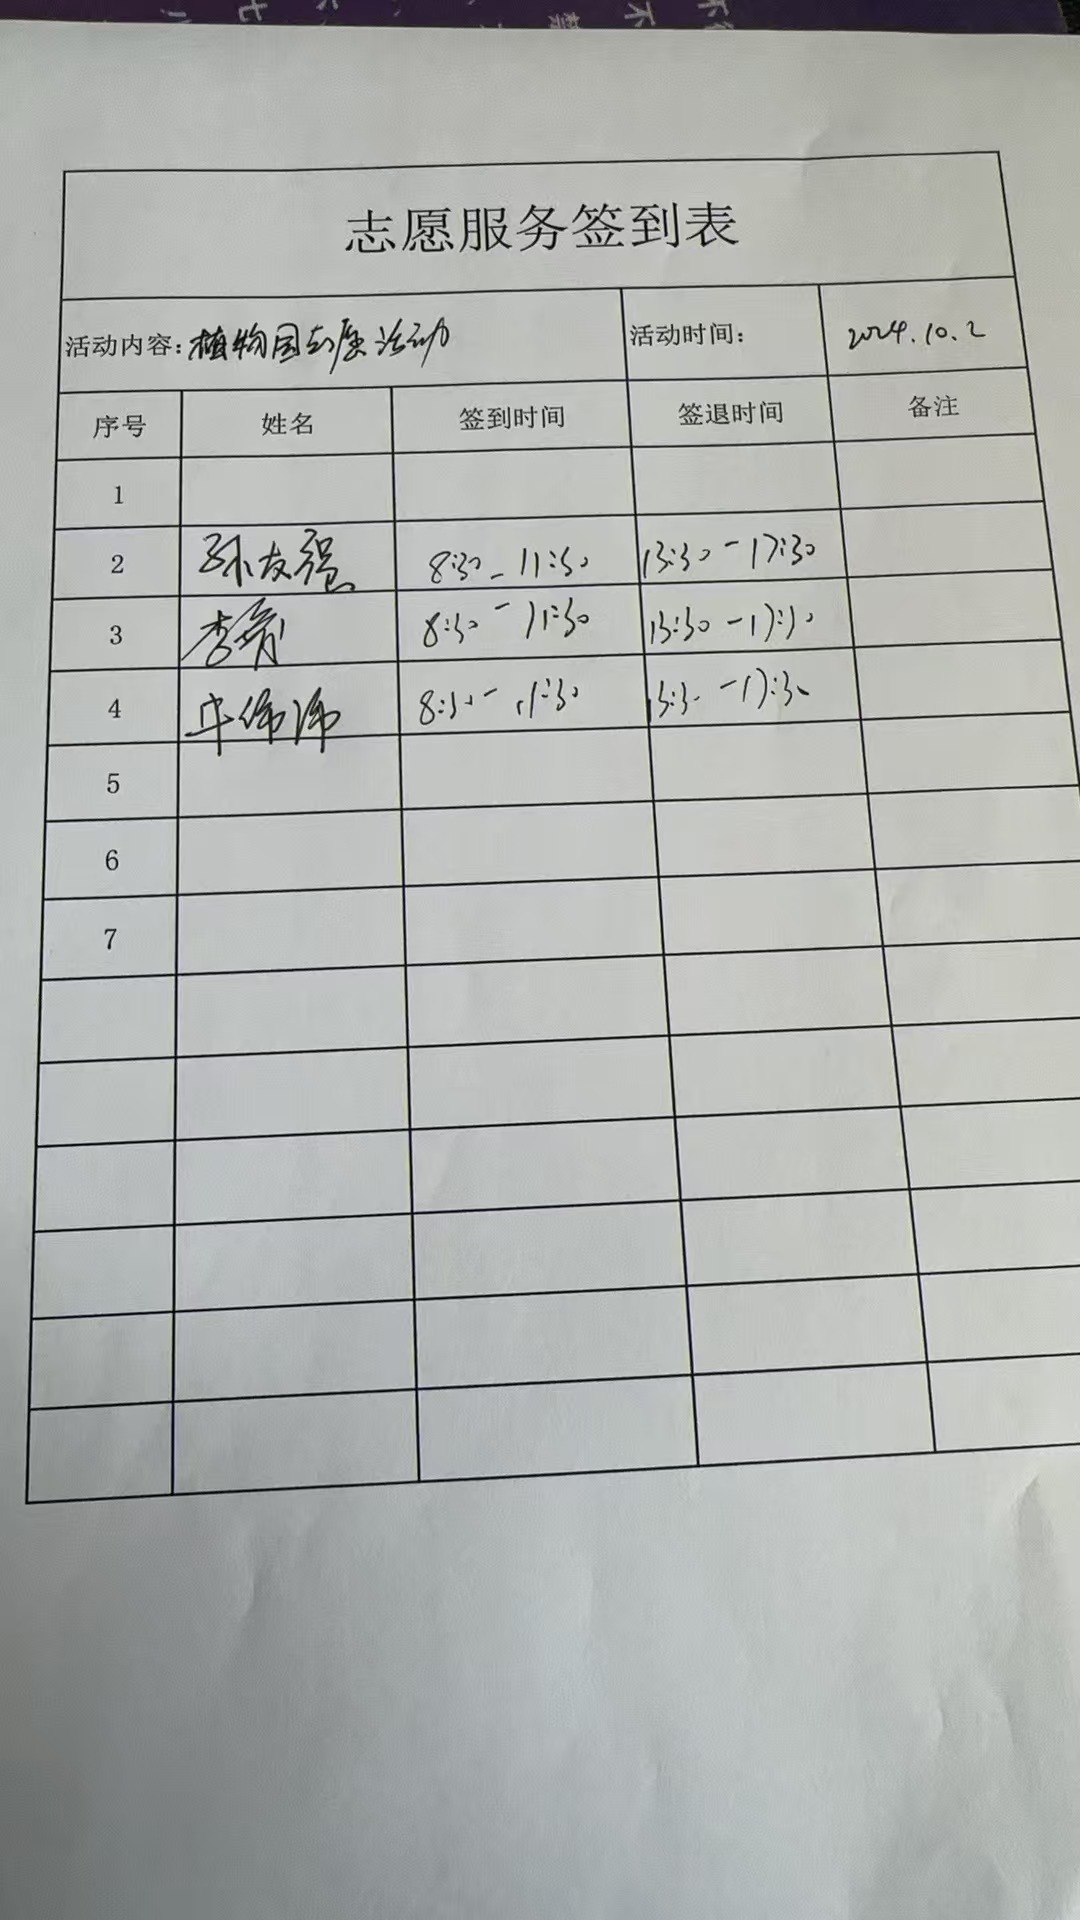 志愿服务签到表
活动内容:植物园志愿活动 活动时间: 2024.10.2
序号 姓名 签到时间 签退时间 备注
1
2 孙友强 8:30-11:30 13:30-17:30
3 李青 8:30-11:30 13:30-17:30
4 8:30-11:30 13:30-17:30
5
6
7